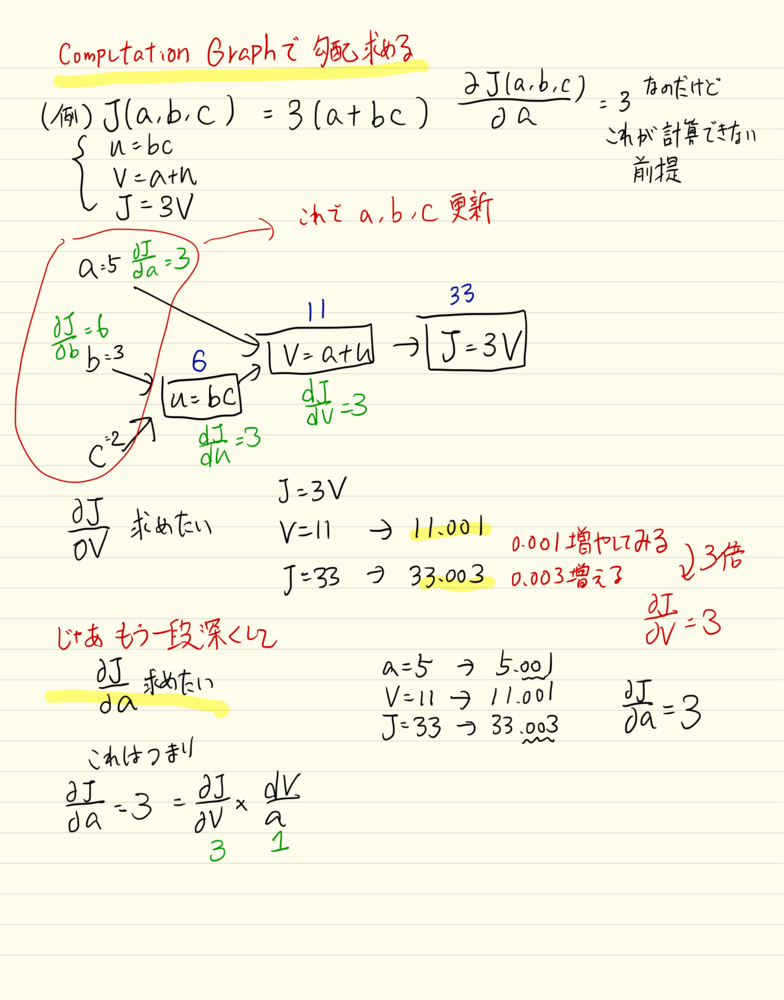 Computation Graphで 勾配求める
(例) J(a,b,c) = 3(a+bc)
u=bc
V=a+u
J=3V
∂J(a,b,c)/∂a = 3 なのだけど
これが計算できない
前提
これで a,b,c 更新
a=5 ∂J/∂a=3
∂J/∂b=6
b=3
c=2
6
u=bc
dJ/du=3
11
V=a+u
dJ/dV=3
33
J=3V
∂J/∂V 求めたい
J=3V
V=11 → 11.001 0.001増やしてみる
J=33 → 33.003 0.003増える
3倍
∂J/∂V=3
じゃあ もう一段深くして
∂J/∂a 求めたい
a=5 → 5.001
V=11 → 11.001
J=33 → 33.003
∂J/∂a=3
これはつまり
∂J/∂a=3 = ∂J/∂V × dV/a
3 1